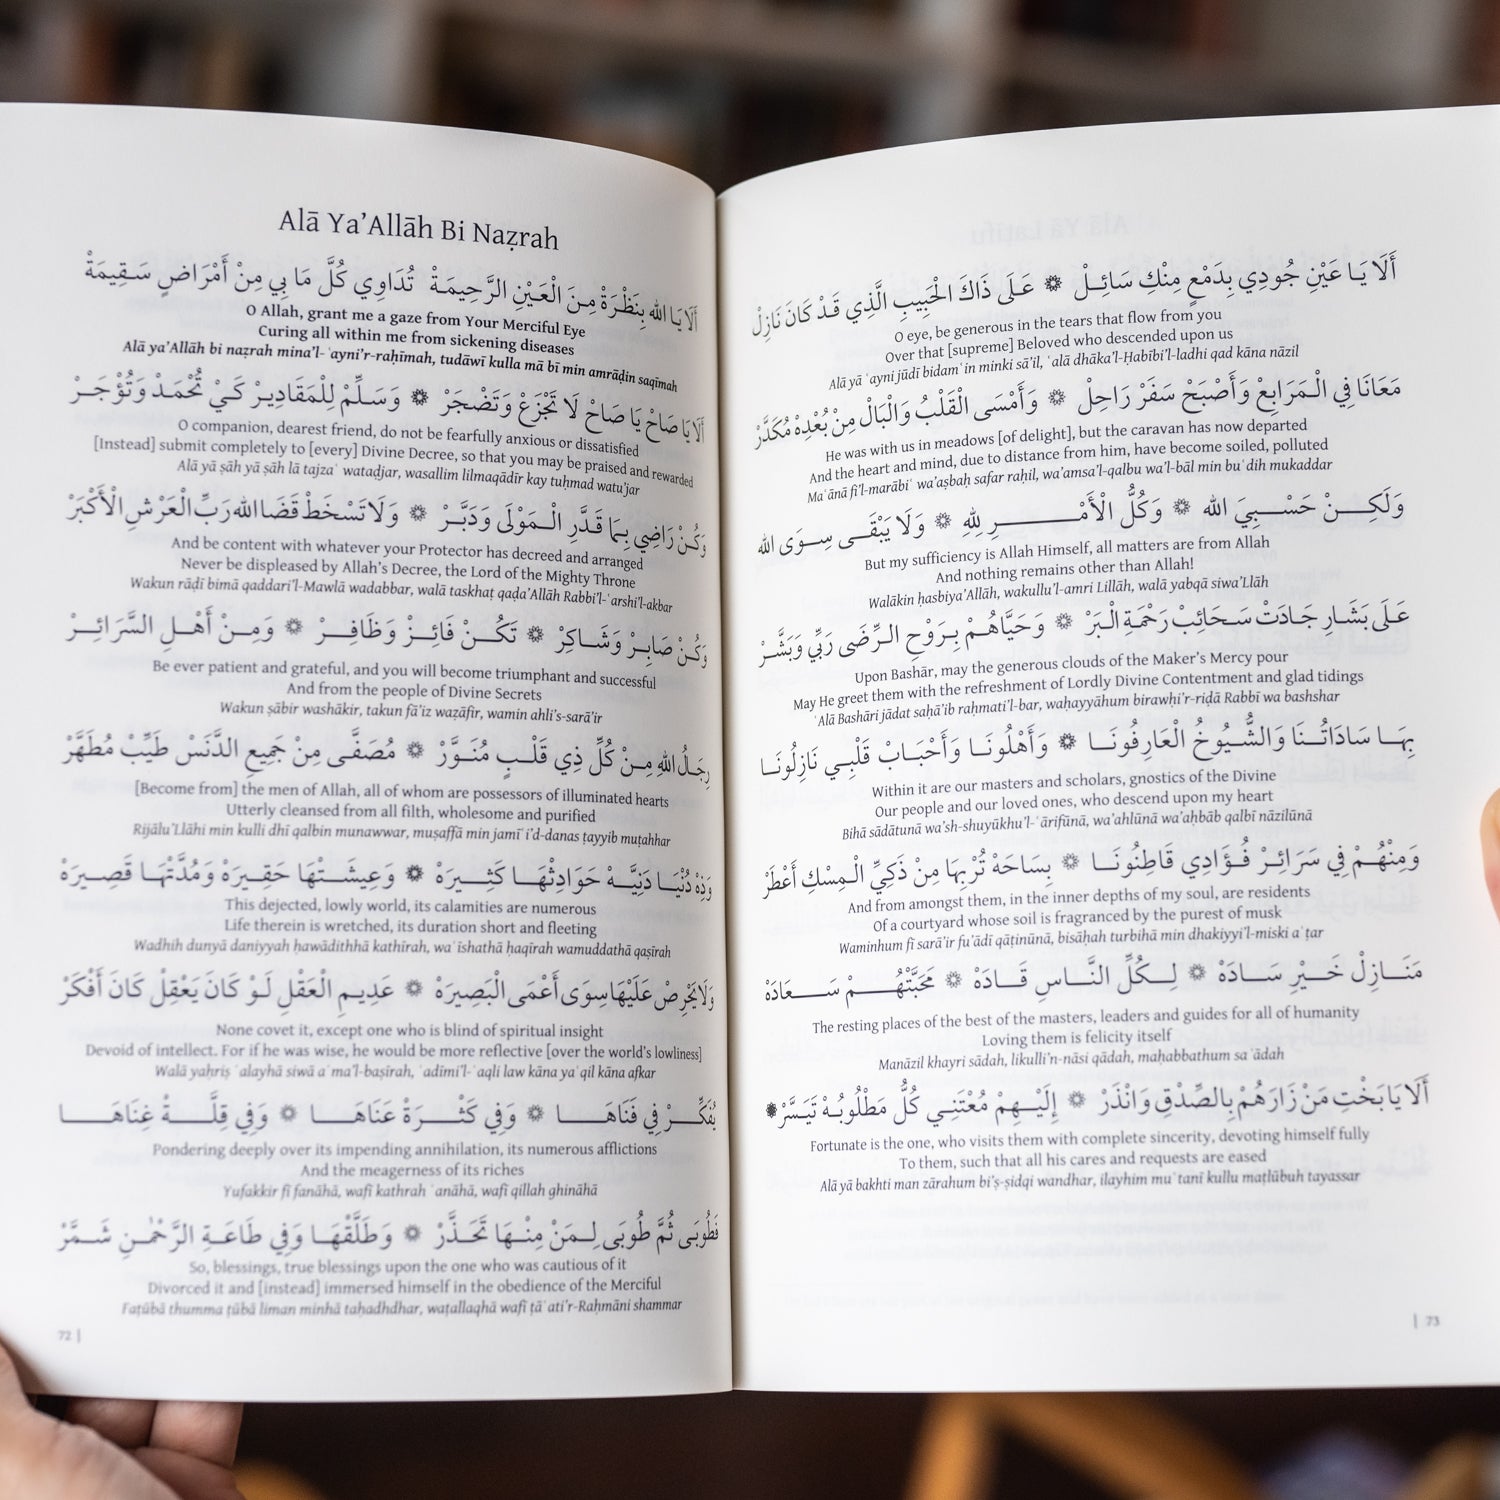 Alā Ya’Allāh Bi Naẓrah
أَلَا يَا الله بِنَظْرَةْ مِنَ الْعَيْنِ الرَّحِيمَةْ تُدَاوِي كُلَّ مَا بِي مِنْ أَمْرَاضٍ سَقِيمَةْ
O Allah, grant me a gaze from Your Merciful Eye
Curing all within me from sickening diseases
Alā ya’Allāh bi naẓrah mina’l-ʿayni’r-raḥīmah, tudāwī kulla mā bī min amrāḍin saqīmah
أَلَا يَا صَاحْ يَا صَاحْ لَا تَجْزَعْ وَتَضْجَرْ ۞ وَسَلِّمْ لِلْمَقَادِيرْ كَيْ تُحْمَدْ وَتُؤْجَرْ
O companion, dearest friend, do not be fearfully anxious or dissatisfied
[Instead] submit completely to [every] Divine Decree, so that you may be praised and rewarded
Alā yā ṣāh yā ṣāh lā tajzaʿ watadjar, wasallim lilmaqādir kay tuḥmad watu’jar
وَكُنْ رَاضِي بِمَا قَدَّرِ الْمَوْلَى وَدَبَّرْ ۞ وَلَا تَسْخَطْ قَضَا الله رَبِّ الْعَرْشِ الْأَكْبَرْ
And be content with whatever your Protector has decreed and arranged
Never be displeased by Allah’s Decree, the Lord of the Mighty Throne
Wakun rāḍī bimā qaddari’l-Mawlā wadabbar, walā taskhaṭ qaḍa’Allāh Rabbi’l-ʿarshi’l-akbar
وَكُنْ صَابِرْ وَشَاكِرْ ۞ تَكُنْ فَائِزْ وَظَافِرْ ۞ وَمِنْ أَهْلِ السَّرَائِرْ
Be ever patient and grateful, and you will become triumphant and successful
And from the people of Divine Secrets
Wakun ṣābir washākir, takun fā’iz waẓāfir, wamin ahli’s-sarā’ir
رِجَالُ اللهِ مِنْ كُلِّ ذِي قَلْبٍ مُنَوَّرْ ۞ مُصَفَّى مِنْ جَمِيعِ الدَّنَسْ طَيِّبْ مُطَهَّرْ
[Become from] the men of Allah, all of whom are possessors of illuminated hearts
Utterly cleansed from all filth, wholesome and purified
Rijālu’Llāhi min kulli dhī qalbin munawwar, muṣaffā min jamīʿi’d-danas ṭayyib muṭahhar
وَذِهْ دُنْيَا دَنِيَّهْ حَوَادِثْهَا كَثِيرَهْ ۞ وَعِيشَتْهَا حَقِيرَهْ وَمُدَّتْهَا قَصِيرَهْ
This dejected, lowly world, its calamities are numerous
Life therein is wretched, its duration short and fleeting
Wadhih dunyā daniyyah ḥawādithhā kathīrah, waʿishathā ḥaqīrah wamuddathā qaṣīrah
وَلَا يَحْرِصْ عَلَيْهَا سِوَى أَعْمَى الْبَصِيرَهْ ۞ عَدِيمِ الْعَقْلِ لَوْ كَانَ يَعْقِلْ كَانَ أَفْكَرْ
None covet it, except one who is blind of spiritual insight
Devoid of intellect. For if he was wise, he would be more reflective [over the world’s lowliness]
Walā yaḥriṣ ʿalayhā siwā aʿma’l-baṣīrah, ʿadimi’l-ʿaqli law kāna yaʿqil kāna afkar
يُفَكِّرْ فِي فَنَاهَا ۞ وَفِي كَثْرَةْ عَنَاهَا ۞ وَفِي قِلَّةْ غِنَاهَا
Pondering deeply over its impending annihilation, its numerous afflictions
And the meagerness of its riches
Yufakkir fī fanāhā, wafī kathrah ʿanāhā, wafī qillah ghināhā
فَطُوبَى ثُمَّ طُوبَى لِمَنْ مِنْهَا تَحَذَّرْ ۞ وَطَلَّقْهَا وَفِي طَاعَةِ الرَّحْمٰنِ شَمَّرْ
So, blessings, true blessings upon the one who was cautious of it
Divorced it and [instead] immersed himself in the obedience of the Merciful
Faṭūbā thumma ṭūbā liman minhā taḥadhdhar, waṭallaqhā wafī ṭāʿati’r-Raḥmāni shammar
72 |
أَلَا يَا عَيْنِ جُودِي بِدَمْعٍ مِنْكِ سَائِلْ ۞ عَلَى ذَاكَ الْحَبِيبِ الَّذِي قَدْ كَانَ نَازِلْ
O eye, be generous in the tears that flow from you
Over that [supreme] Beloved who descended upon us
Alā yā ʿayni jūdī bidamʿin minki sā’il, ʿalā dhāka’l-Ḥabībi’l-ladhi qad kāna nāzil
مَعَانَا فِي الْمَرَابِعْ وَأَصْبَحْ سَفَرْ رَاحِلْ ۞ وَأَمْسَى الْقَلْبُ وَالْبَالْ مِنْ بُعْدِهْ مُكَدَّرْ
He was with us in meadows [of delight], but the caravan has now departed
And the heart and mind, due to distance from him, have become soiled, polluted
Maʿānā fi’l-marābiʿ wa’aṣbaḥ safar raḥil, wa’amsa’l-qalbu wa’l-bāl min buʿdih mukaddar
وَلَكِنْ حَسْبِيَ الله ۞ وَكُلُّ الْأَمْرِ لِلهِ ۞ وَلَا يَبْقَى سِوَى الله
But my sufficiency is Allah Himself, all matters are from Allah
And nothing remains other than Allah!
Walākin ḥasbiya’Allāh, wakullu’l-amri Lillāh, walā yabqā siwa’Llāh
عَلَى بَشَّارِ جَادَتْ سَحَائِبْ رَحْمَةِ الْبَرْ ۞ وَحَيَّاهُمْ بِرَوْحِ الرِّضَى رَبِّي وَبَشَّرْ
Upon Bashār, may the generous clouds of the Maker’s Mercy pour
May He greet them with the refreshment of Lordly Divine Contentment and glad tidings
ʿAlā Bashāri jādat saḥā’ib raḥmati’l-bar, waḥayyāhum birawḥi’r-riḍā Rabbī wa bashshar
بِهَا سَادَاتُنَا وَالشُّيُوخُ الْعَارِفُونَا ۞ وَأَهْلُونَا وَأَحْبَابْ قَلْبِي نَازِلُونَا
Within it are our masters and scholars, gnostics of the Divine
Our people and our loved ones, who descend upon my heart
Bihā sādātunā wa’sh-shuyūkhu’l-ʿārifūnā, wa’ahlūnā wa’aḥbāb qalbī nāzilūnā
وَمِنْهُمْ فِي سَرَائِرْ فُؤَادِي قَاطِنُونَا ۞ بِسَاحَهْ تُرْبِهَا مِنْ ذَكِيِّ الْمِسْكِ أَعْطَرْ
And from amongst them, in the inner depths of my soul, are residents
Of a courtyard whose soil is fragranced by the purest of musk
Waminhum fī sarā’ir fu’ādī qāṭinūnā, bisāḥah turbihā min dhakiyyi’l-miski aʿṭar
مَنَازِلْ خَيْرِ سَادَهْ ۞ لِكُلِّ النَّاسِ قَادَهْ ۞ مَحَبَّتْهُمْ سَعَادَهْ
The resting places of the best of the masters, leaders and guides for all of humanity
Loving them is felicity itself
Manāzil khayri sādah, likulli’n-nāsi qādah, maḥabbathum saʿādah
أَلَا يَا بَخْتِ مَنْ زَارَهُمْ بِالصِّدْقِ وَانْذَرْ ۞ إِلَيْهِمْ مُعْتَنِي كُلُّ مَطْلُوبُهْ تَيَسَّرْ ۞
Fortunate is the one, who visits them with complete sincerity, devoting himself fully
To them, such that all his cares and requests are eased
Alā yā bakhti man zārahum bi’ṣ-ṣidqi wandhar, ilayhim muʿtanī kullu maṭlūbuh tayassar
| 73